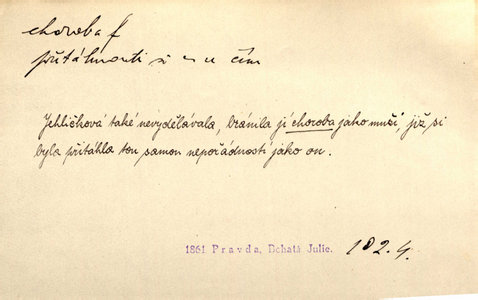 choroba f
přitáhnouti si co čím
Jehličková také nevydělávala, bránila jí choroba jako muži, již si
byla přitáhla tou samou nepořádností jako on.
1861 Pravda, Bohatá Julie. 182.4.